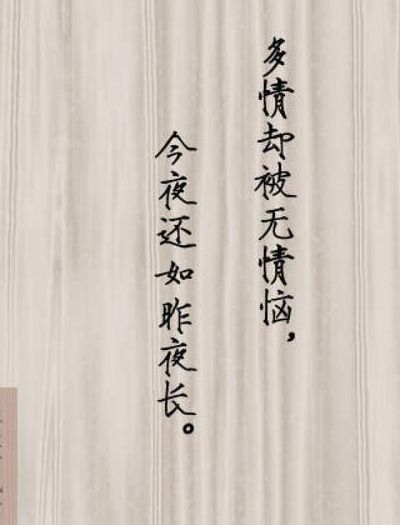 多情却被无情恼，
今夜还如昨夜长。